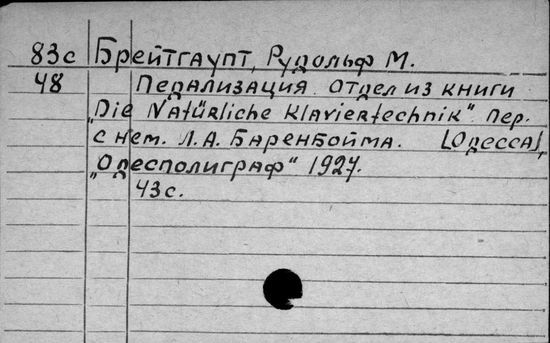 83с Брейтгаупт, Рудольф М.
48 Педализация. Отдел из книги
„Die Natürliche Klaviertechnik“. Пер.
с нем. Л. А. Баренбойма. [Одесса],
„Одесполиграф“ 1927.
43 с.